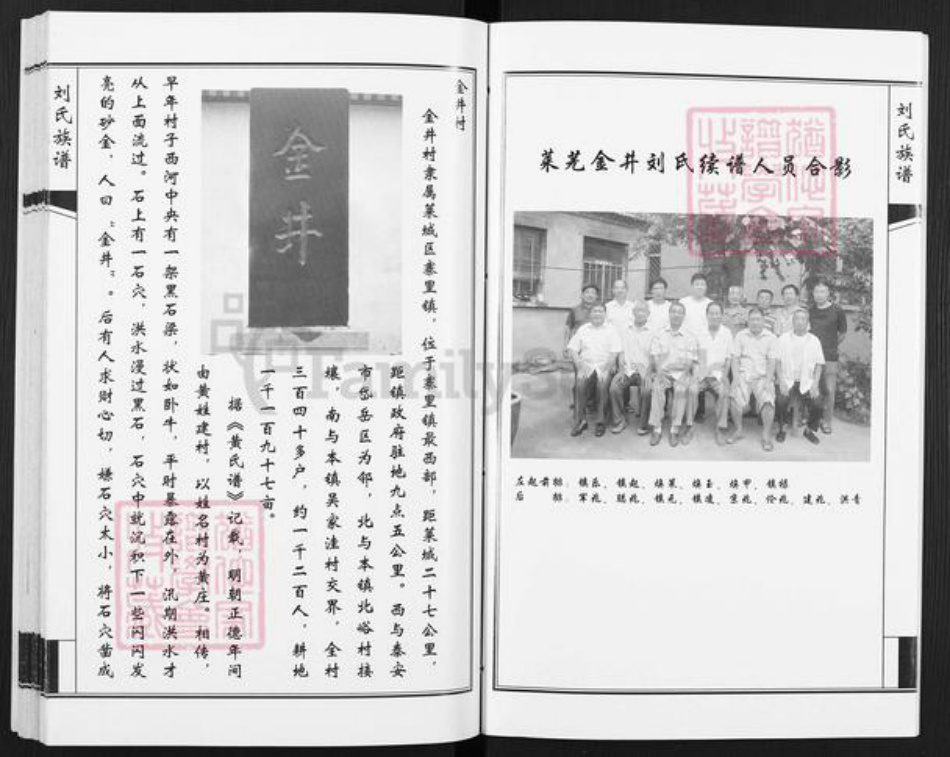 刘氏族谱
莱芜金井刘氏续谱人员合影
左起前排：镇乐、镇起、焕策、焕玉、焕甲、镇禄
后　　排：军兆、聪兆、镇元、镇凌、宗兆、伦兆、建兆、洪青
金井村
金井村隶属莱城区寨里镇，位于寨里镇最西部，距莱城二十七公里，
距镇政府驻地九点五公里。西与泰安
市岱岳区为邻，北与本镇北峪村接
壤，南与本镇吴家洼村交界，全村
三百四十多户，约一千二百人，耕地
一千一百九十七亩。
据《黄氏谱》记载，明朝正德年间
由黄姓建村，以姓名村为黄庄。相传，
早年村子西河中央有一架黑石梁，状如卧牛，平时暴露在外，汛期洪水才
从上面流过。石上有一石穴，洪水漫过黑石，石穴中就沉积下一些闪闪发
亮的砂金，人曰“金井”。后有人求财心切，嫌石穴太小，将石穴凿成
金井
刘氏族谱
FamilySearch